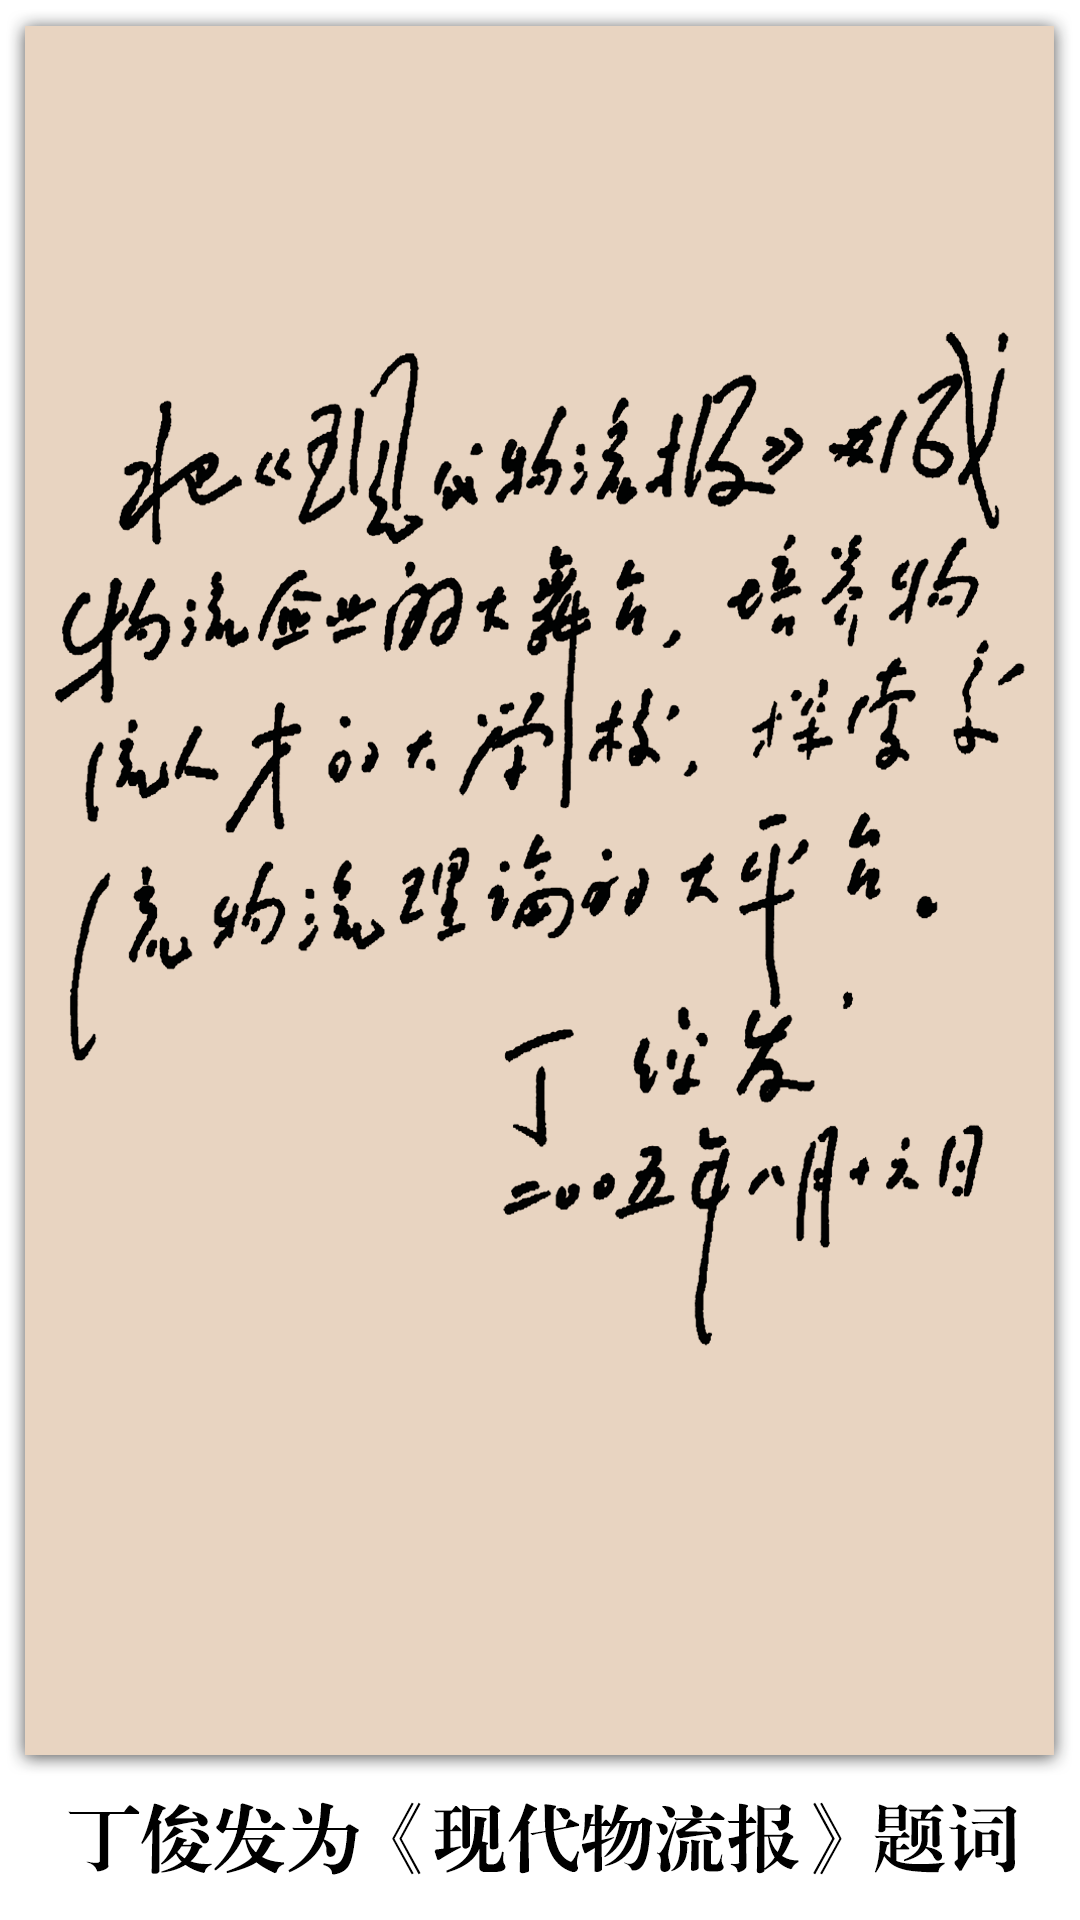 把《现代物流报》办成
物流企业的大舞台，培养物
流人才的大学校，探索交
流物流理论的大平台。
丁俊发
二〇〇五年八月十六日
丁俊发为《现代物流报》题词